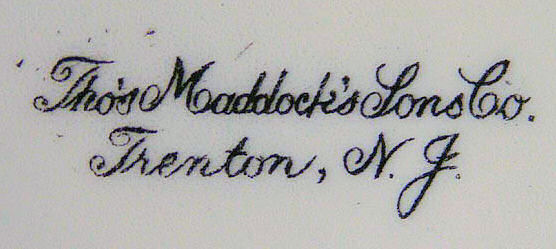 Tho's Maddock's Sons Co.
Trenton, N. J.